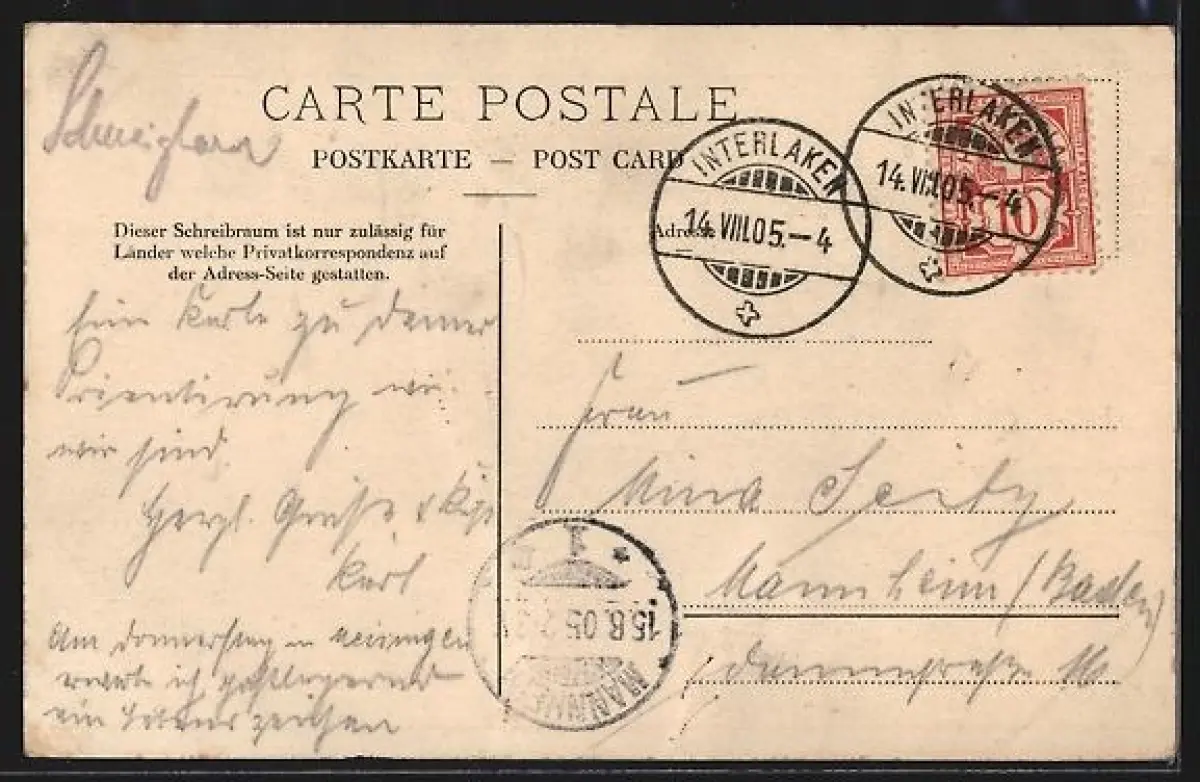 Schweighard
CARTE POSTALE
POSTKARTE — POST CARD
Dieser Schreibraum ist nur zulässig für
Länder welche Privatkorrespondenz auf
der Adress-Seite gestatten.
Adresse
INTERLAKEN
14.VIII.05.–4
INTERLAKEN
14.VIII.05.–4
10
Eine Karte zu Deiner
Orientirung wo
wir sind.
Herzl. Grüße & Küße
Karl
Am Donnerstag in Meiringen
erwarte ich postlagernd
ein Lebenszeichen
Frau
Mina Seitz
Mannheim (Baden)
15.8.05
MANNH
1